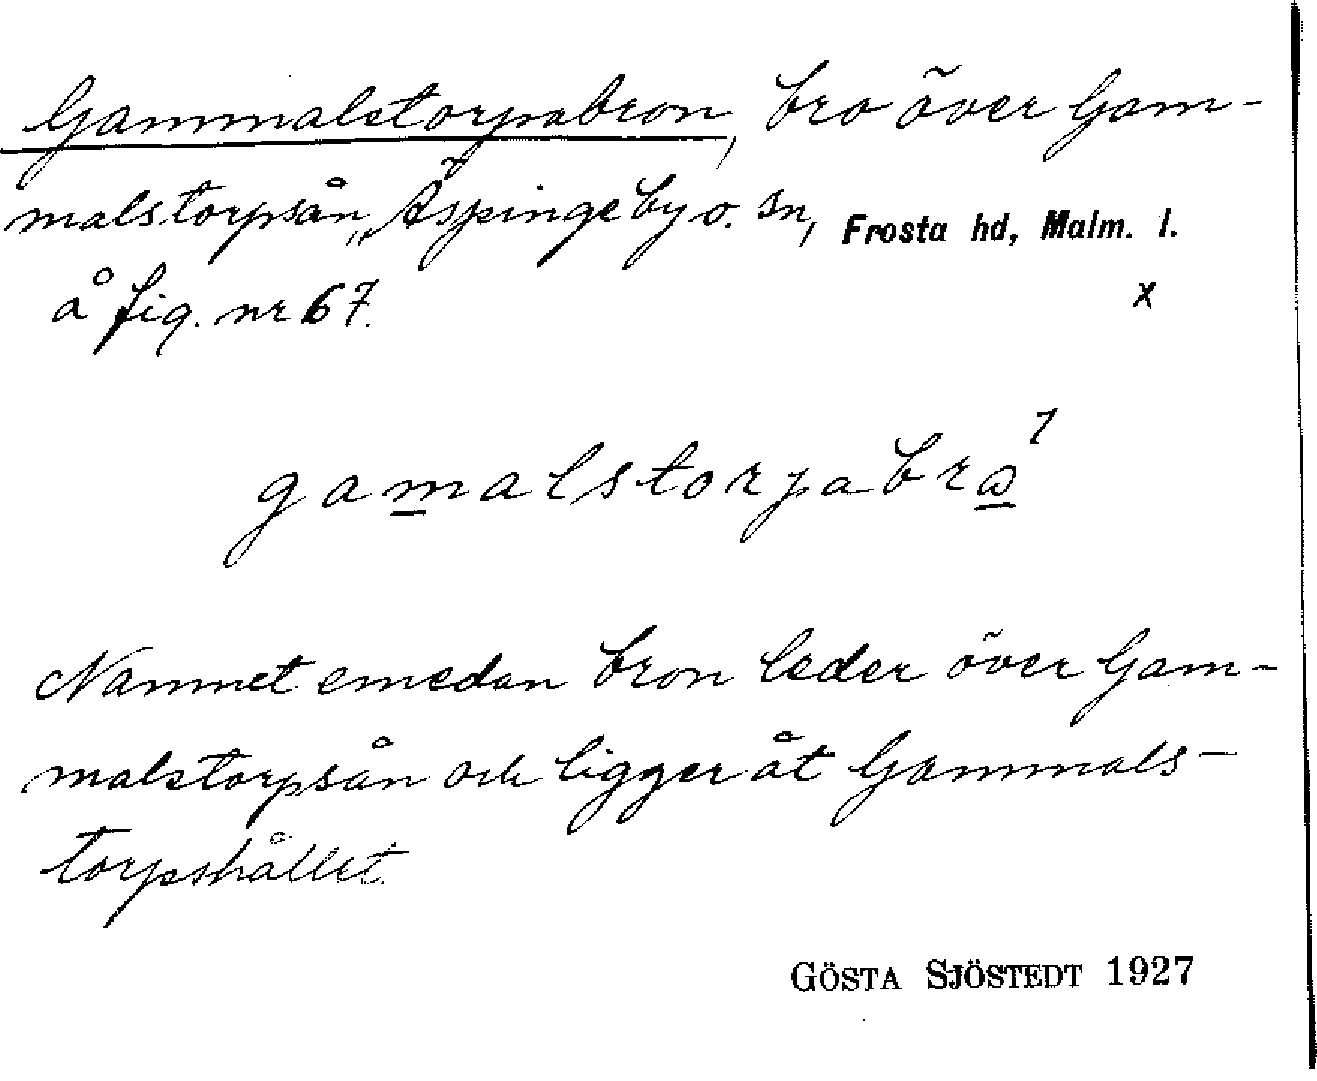 Gammalstorpabron, bro över Gam-
malstorpsån, Äspinge by o. sn, Frosta hd, Malm. l.
å fig. nr 67. x
gamalstorpabro 1
Namnet emedan bron leder över Gam-
malstorpsån och ligger åt Gammals-
torpshållet.
GÖSTA SJÖSTEDT 1927